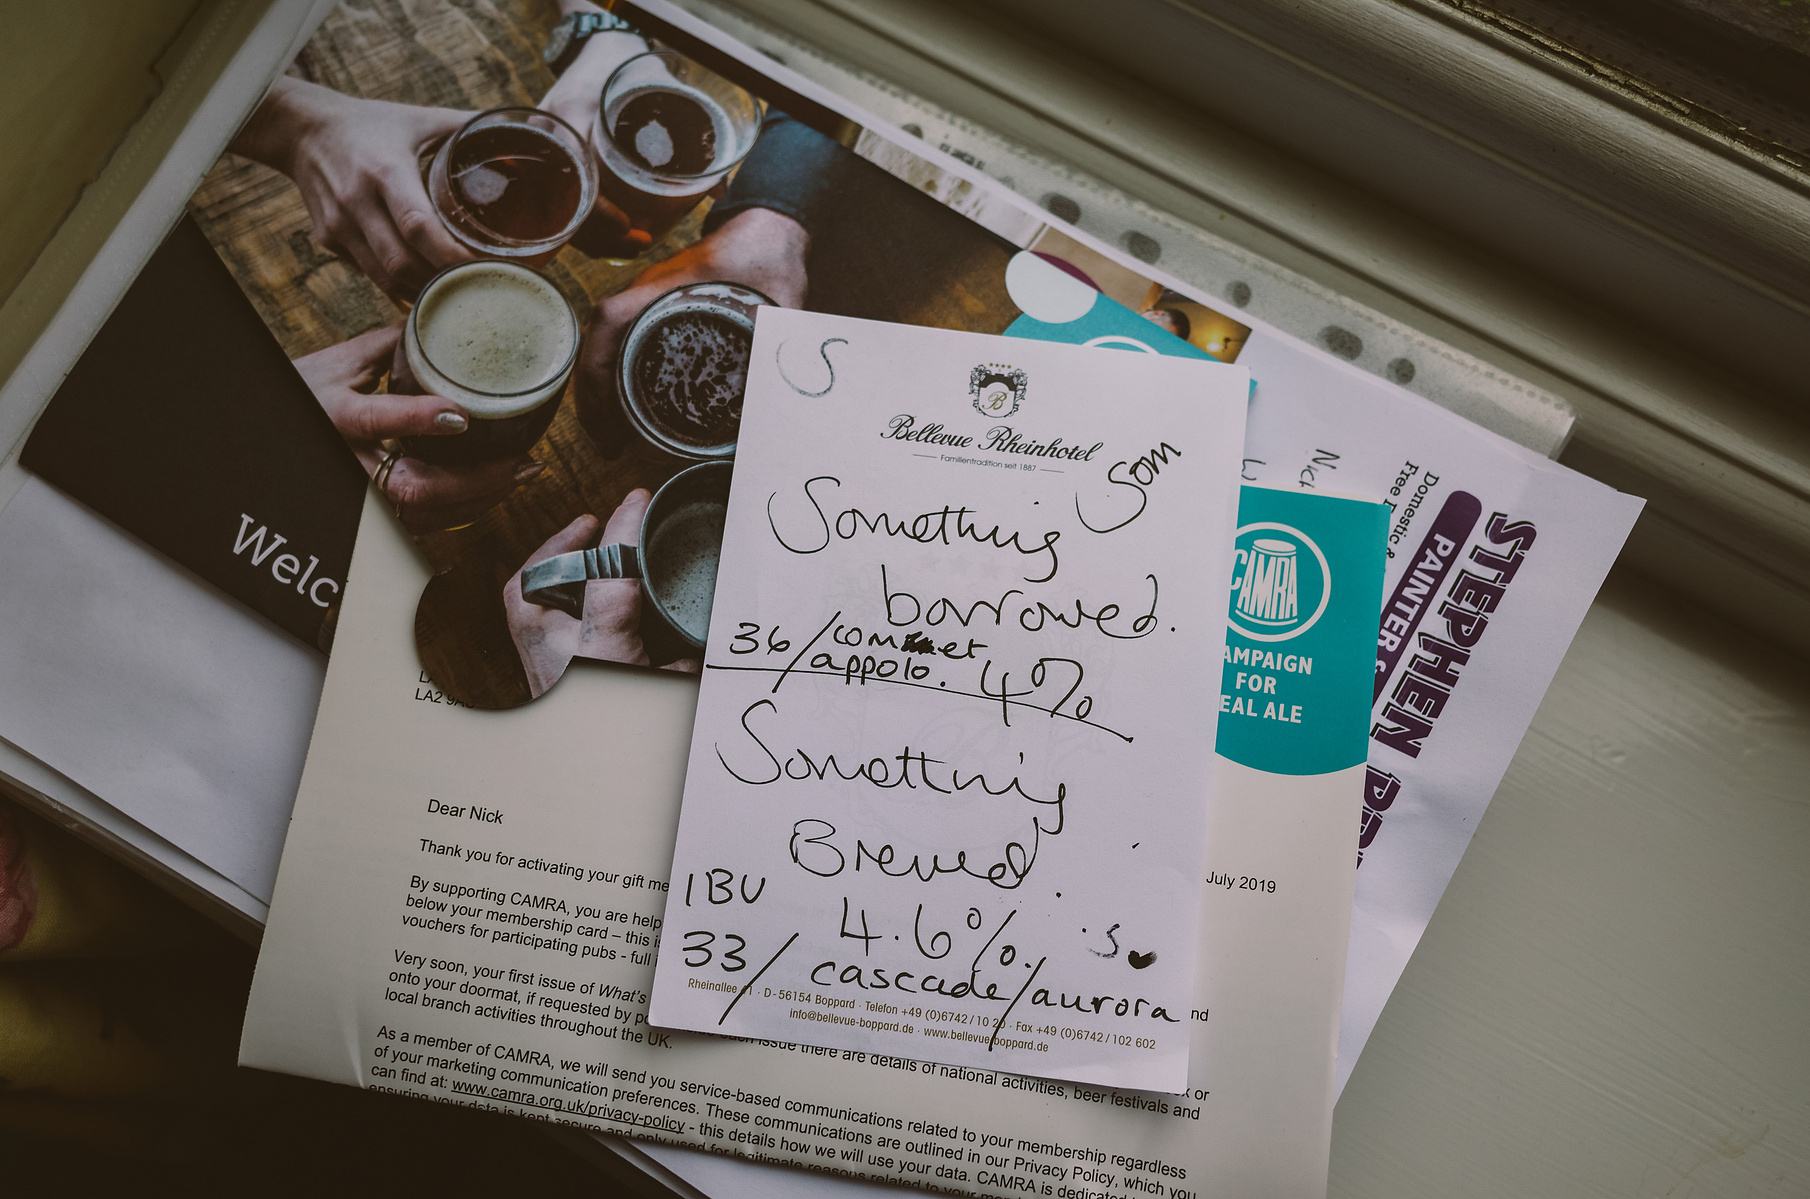 Welc
S
B
Bellevue Rheinhotel
Familientradition seit 1887
Som
Something
borrowed.
36/comet
appolo. 4%
Something
Brewed.
IBU
4.6%.
33/ cascade/aurora
Rheinallee 41 · D-56154 Boppard · Telefon +49 (0)6742/10 20 · Fax +49 (0)6742/102 602
info@bellevue-boppard.de · www.bellevue-boppard.de
Nick
Domestic &
Free
STEPHEN
PAINTER &
CAMRA
AMPAIGN
FOR
EAL ALE
LA2 9A
July 2019
Dear Nick
Thank you for activating your gift me
By supporting CAMRA, you are help
below your membership card – this i
vouchers for participating pubs - full
Very soon, your first issue of What's
onto your doormat, if requested by po
nd
local branch activities throughout the UK.
issue there are details of national activities, beer festivals and
As a member of CAMRA, we will send you service-based communications related to your membership regardless
of your marketing communication preferences. These communications are outlined in our Privacy Policy, which you
can find at: www.camra.org.uk/privacy-policy - this details how we will use your data. CAMRA is dedicated
ensuring your data is kept secure and only used for legitimate reasons related to your